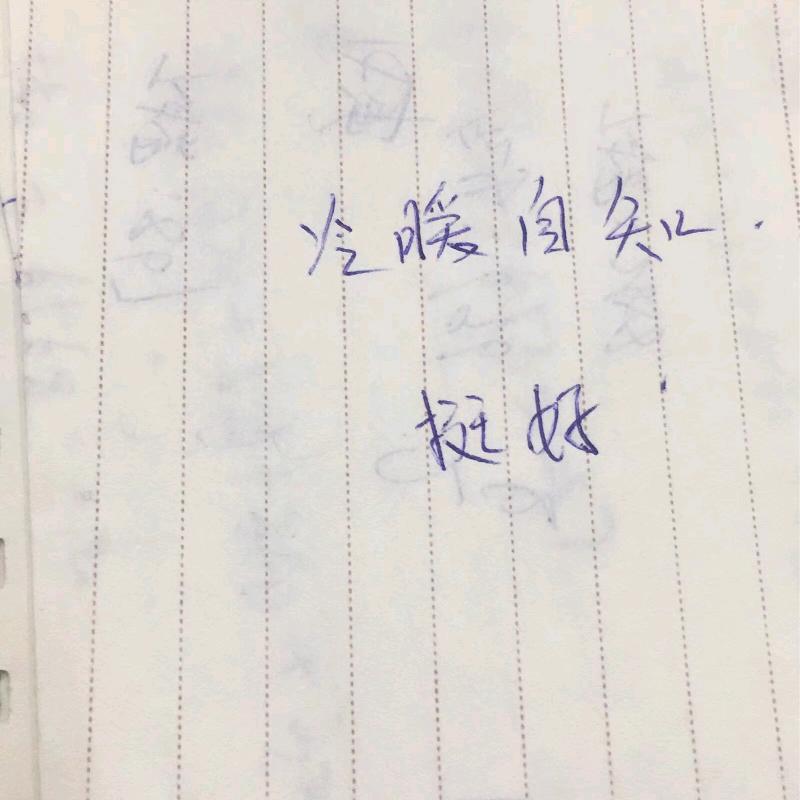 冷暖自知.
挺好